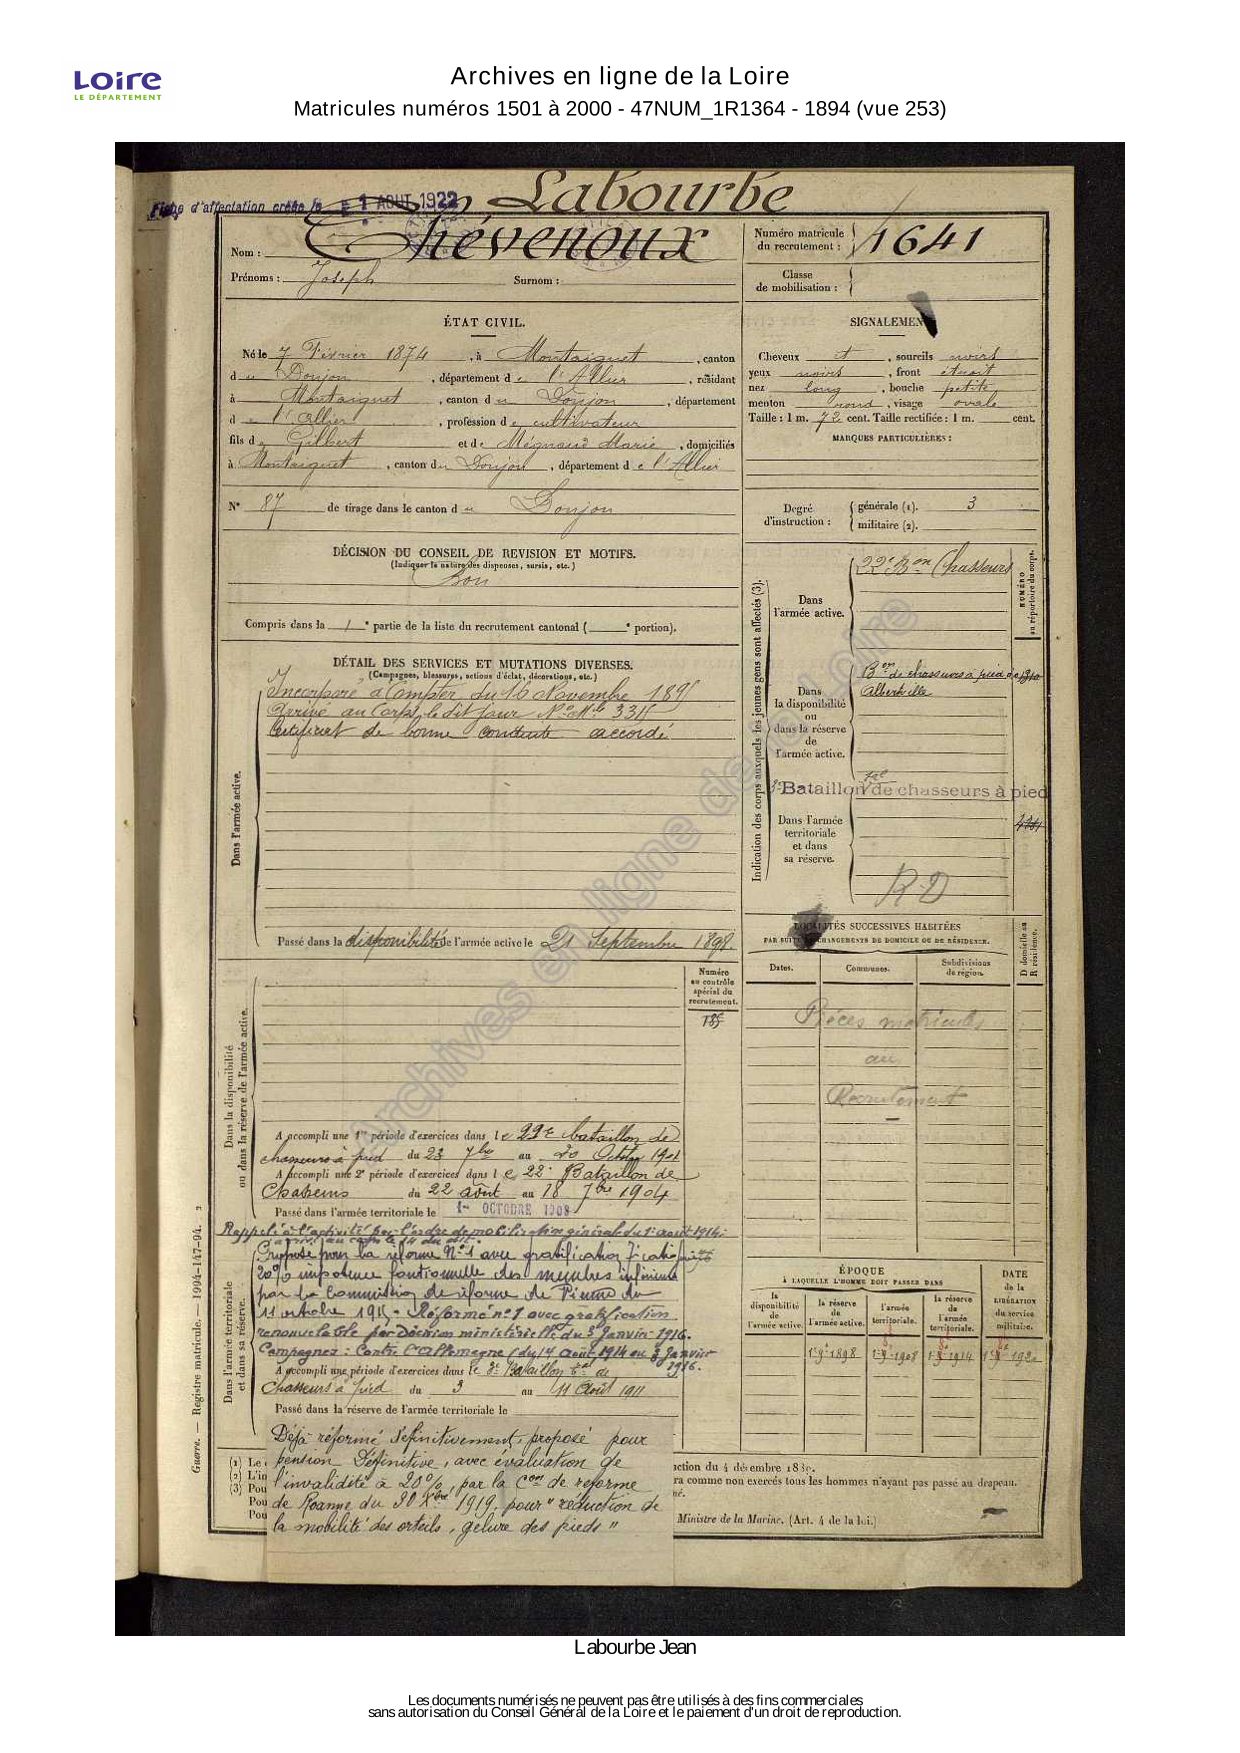 Loire
LE DÉPARTEMENT
Archives en ligne de la Loire
Matricules numéros 1501 à 2000 - 47NUM_1R1364 - 1894 (vue 253)
Fiche d'affectation créée le 1 AOUT 1922
Labourbe
Nom : Chévenoux
Prénoms : Joseph Surnom :
Numéro matricule du recrutement : 1641
Classe de mobilisation :
ÉTAT CIVIL.
Né le 7 Février 1874, à Montaiguet, canton
du Donjon, département de l'Allier, résidant
à Montaiguet, canton du Donjon, département
de l'Allier, profession de cultivateur
fils de Gilbert et de Mégnaud Marie, domiciliés
à Montaiguet, canton du Donjon, département de l'Allier
N° 87 de tirage dans le canton du Donjon
SIGNALEMENT
Cheveux et, sourcils noirs
yeux noirs, front étroit
nez long, bouche petite
menton rond, visage ovale
Taille : 1 m. 72 cent. Taille rectifiée : 1 m. cent.
MARQUES PARTICULIÈRES :
Degré d'instruction : générale (1). 3
militaire (2).
DÉCISION DU CONSEIL DE REVISION ET MOTIFS.
(Indiquer la nature des dispenses, sursis, etc.)
Bon
Compris dans la 1e partie de la liste du recrutement cantonal ( e portion).
DÉTAIL DES SERVICES ET MUTATIONS DIVERSES.
(Campagnes, blessures, actions d'éclat, décorations, etc.)
Dans l'armée active.
Incorporé à compter du 16 Novembre 1895
Arrivé au Corps le dit jour N° Mle 3315
Certificat de bonne conduite accordé
Passé dans la disponibilité de l'armée active le 21 Septembre 1898.
Indication des corps auxquels les jeunes gens sont affectés (3).
NUMÉRO au répertoire du corps.
Dans l'armée active.
22e Bon Chasseurs
Dans la disponibilité ou dans la réserve de l'armée active.
Bon de chasseurs à pied de
Albertville
3e Bataillon tal de chasseurs à pied
Dans l'armée territoriale et dans sa réserve.
R.D
LOCALITÉS SUCCESSIVES HABITÉES
PAR SUITE DE CHANGEMENTS DE DOMICILE OU DE RÉSIDENCE.
Dates. Communes. Subdivisions de région. D domicile ou R résidence.
Pièces matricules
au
Recrutement
Numéro au contrôle spécial du recrutement.
185
Dans la disponibilité ou dans la réserve de l'armée active.
A accompli une 1re période d'exercices dans le 22e bataillon de
chasseurs à pied du 23 7bre au 20 Octobre 1901
A accompli une 2e période d'exercices dans le 22e Bataillon de
Chasseurs du 22 août au 18 7bre 1904
Passé dans l'armée territoriale le 1er OCTOBRE 1908
Dans l'armée territoriale et dans sa réserve.
Rappelé à l'activité par l'ordre de mobilisation générale du 1er août 1914.
arrivé au corps le 14 du dit.
Proposé pour la réforme N°1 avec gratification
20% impotence fonctionnelle des membres inférieurs
par la Commission de réforme de Vienne du
11 octobre 1915. Réformé n° 1 avec gratification
renouvelable par Décision ministérielle du 3 Janvier 1916.
Campagnes : Contre l'Allemagne du 14 août 1914 au 3 Janvier 1916.
A accompli une période d'exercices dans le 3e Bataillon tal de
Chasseurs à pied du 3 au 11 Août 1911
Passé dans la réserve de l'armée territoriale le
Déjà réformé définitivement, proposé pour
pension Définitive, avec évaluation de
l'invalidité à 20%, par la Con de réforme
de Roanne du 30 Xbre 1919. pour "réduction de
la mobilité des orteils, gelure des pieds"
ÉPOQUE
À LAQUELLE L'HOMME DOIT PASSER DANS
la disponibilité de l'armée active.
la réserve de l'armée active.
l'armée territoriale.
la réserve de l'armée territoriale.
DATE de la LIBÉRATION du service militaire.
1er 9 1898 1908 1914 1920
(1) Le
(2) L'in
(3) Pou
Pou
Pou
ction du 4 décembre 1889.
ra comme non exercés tous les hommes n'ayant pas passé au drapeau.
né.
Ministre de la Marine. (Art. 4 de la loi.)
Guerre. — Registre matricule. — 1994-147-94. 2
Archives en ligne de la Loire
Labourbe Jean
Les documents numérisés ne peuvent pas être utilisés à des fins commerciales
sans autorisation du Conseil Général de la Loire et le paiement d'un droit de reproduction.